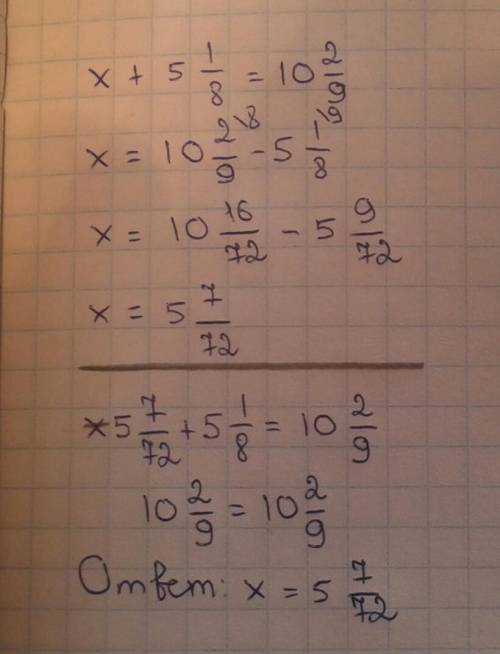 x + 5 1/8 = 10 2/9
x = 10 2/9 \8 - 5 1/8 \9
x = 10 16/72 - 5 9/72
x = 5 7/72
5 7/72 + 5 1/8 = 10 2/9
10 2/9 = 10 2/9
Ответ: x = 5 7/72